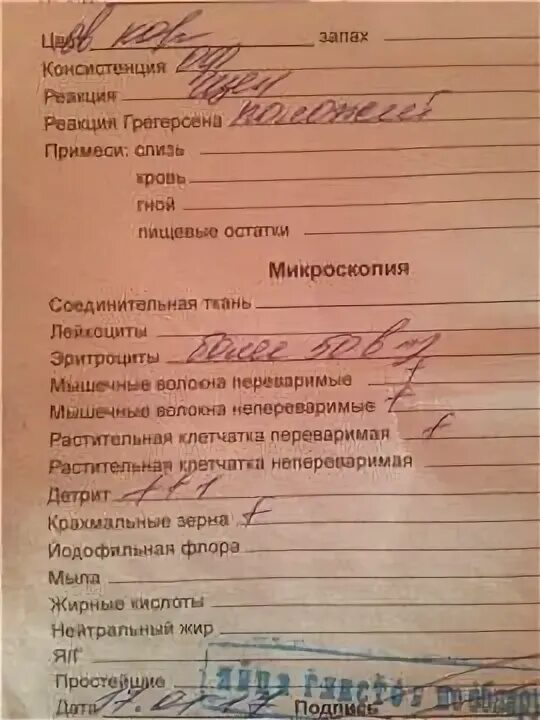 Цвет св кор запах
Консистенция оф
Реакция щел
Реакция Грегерсена положит
Примеси: слизь
кровь
гной
пищевые остатки
Микроскопия
Соединительная ткань
Лейкоциты
Эритроциты более 50 в
Мышечные волокна переваримые +
Мышечные волокна непереваримые +
Растительная клетчатка переваримая +
Растительная клетчатка непереваримая
Детрит +++
Крахмальные зерна +
Йодофильная флора
Мыла
Жирные кислоты
Нейтральный жир
Я/Г
Простейшие
яйца глистов не обнар
Дата 17.01.17 Подпись